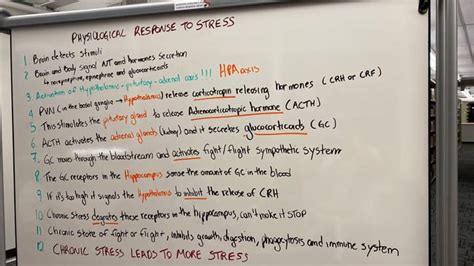 PHYSIOLOGICAL RESPONSE TO STRESS
1 Brain detects stimuli
2 Brain and body signal NT and hormones secretion
↳ norepinephrine, epinephrine and glucocorticoids
3. Activation of Hypothalamic-pituitary-adrenal axis !!! HPA axis
4 PVN (in the basal ganglia → Hypothalamus) release corticotropin releasing hormones (CRH or CRF)
5 This stimulates the pituitary gland to release Adrenocorticotropic hormone (ACTH)
6. ACTH activates the adrenal glands (kidney) and it secretes glucocorticoids (GC)
7. GC moves through the bloodstream and activates fight/flight sympathetic system
8. The GC receptors in the Hippocampus sense the amount of GC in the blood
9 If it's too high it signals the Hypothalamus to inhibit the release of CRH
10 Chronic stress degrates these receptors in the hippocampus, can't make it STOP
11 Chronic state of fight or flight, inhibits growth, digestion, phagocytosis and immune system
12 CHRONIC STRESS LEADS TO MORE STRESS